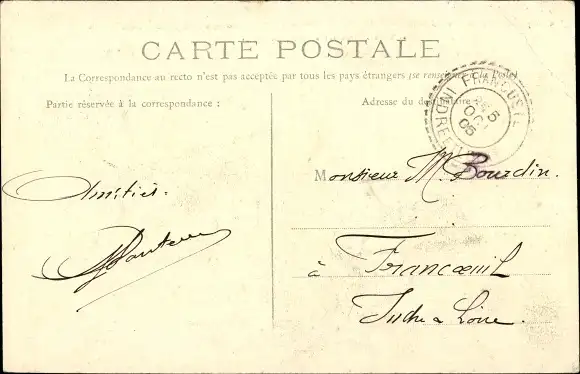 CARTE POSTALE
La Correspondance au recto n'est pas acceptée par tous les pays étrangers (se renseigner à la Poste)
Partie réservée à la correspondance :
Adresse du destinataire
Amitiés.
FRANCUEIL
5
OCT
05
INDRE-ET-L
Monsieur M. Bourdin.
à Francœuil
Indre & Loire.